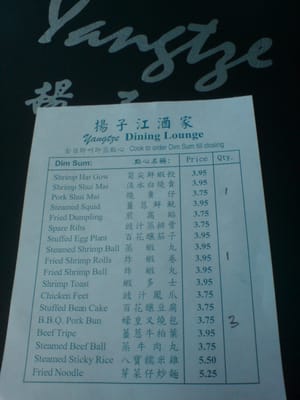 Yangtze
揚子
揚子江酒家
Yangtze Dining Lounge
Cook to order Dim Sum till closing
Dim Sum: 點心名稱: Price Qty.
Shrimp Har Gow 筍尖鮮蝦餃 3.95
Shrimp Shui Mai 3.95 1
Pork Shui Mai 燒賣仔 3.75
Steamed Squid 薑葱鮮魷 3.95
Fried Dumpling 煎窩貼 3.75
Spare Ribs 豉汁蒸排骨 3.75
Stuffed Egg Plant 百花釀茄子 3.95
Steamed Shrimp Ball 蒸蝦丸 3.95
Fried Shrimp Rolls 炸蝦卷 3.95 1
Fried Shrimp Ball 炸蝦丸 3.95
Shrimp Toast 蝦多士 3.95
Chicken Feet 豉汁鳳爪 3.75
Stuffed Bean Cake 百花釀豆腐 3.75
B.B.Q. Pork Bun 蜂巢叉燒包 3.75 3
Beef Tripe 薑葱牛柏葉 3.95
Steamed Beef Ball 蒸牛肉丸 3.75
Steamed Sticky Rice 八寶糯米雞 5.50
Fried Noodle 芽菜仔炒麵 5.25